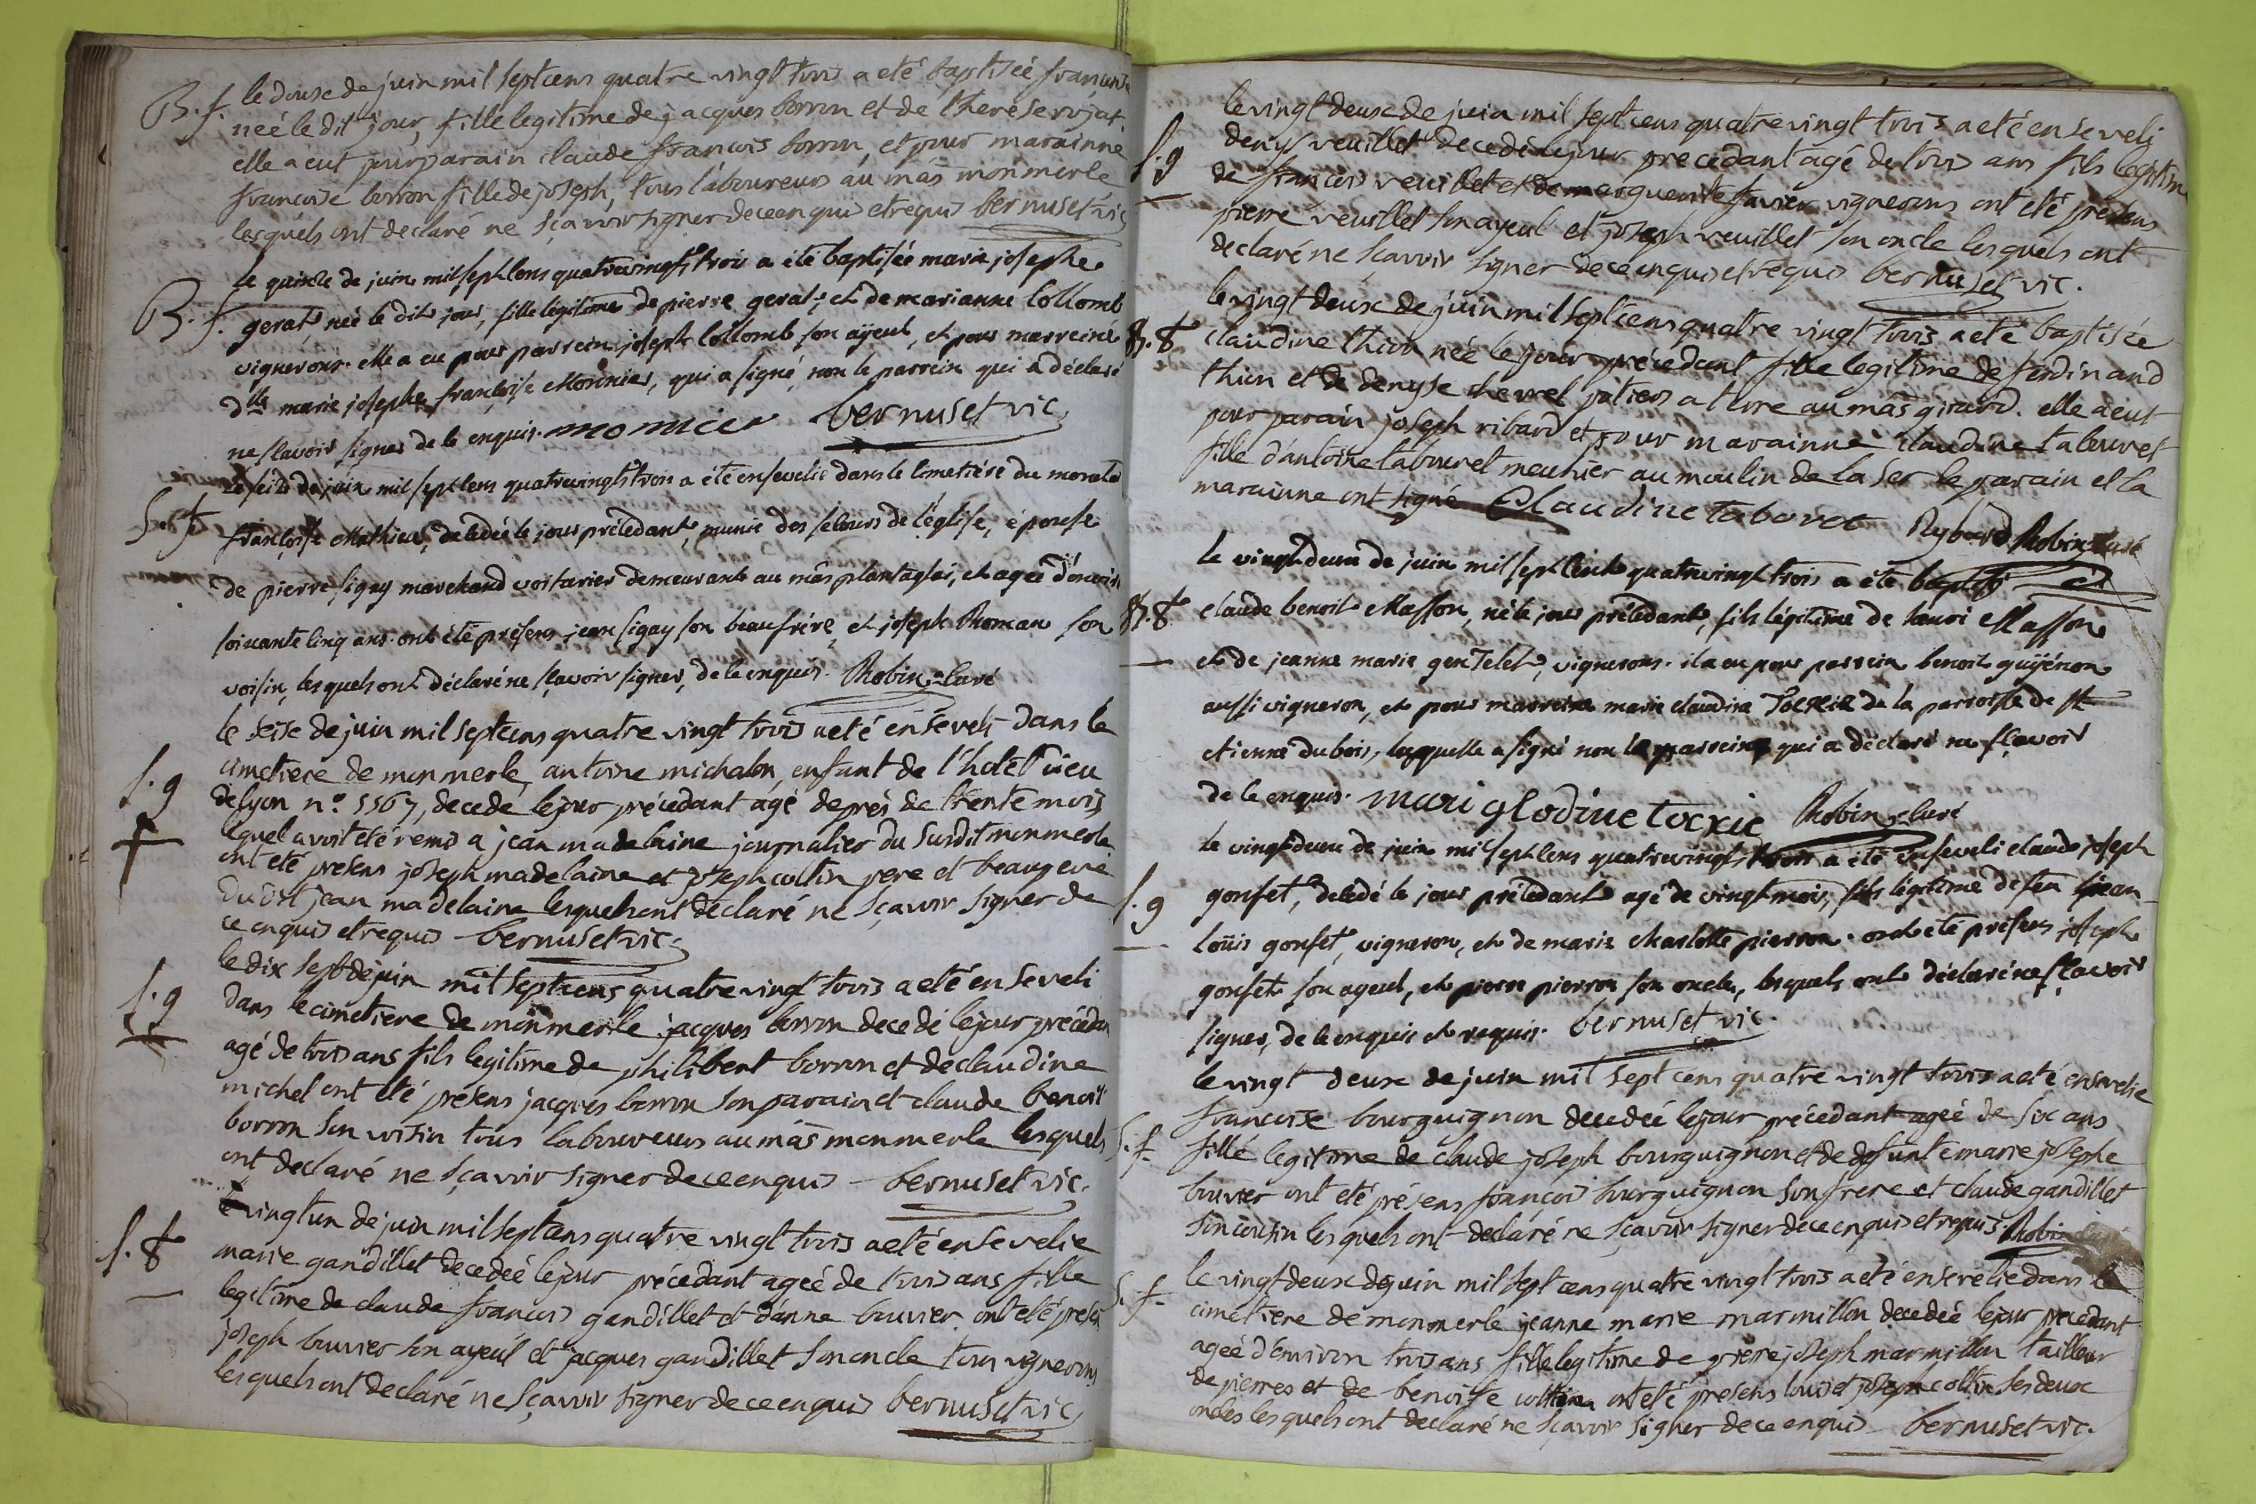 B. f. le douse de juin mil sept cens quatre vingt trois a eté baptisée francoise
neé le dit jour, fille legitime de jacques borron et de therese rojat.
elle a eut pour parain claude francois borron, et pour marainne
francoise borron fille de joseph, tous laboureurs au mâs monmerle
lesquels ont declaré ne sçavoir signer de ce enquis et requis bernuset vic
le quinze de juin mil sept cens quatrevingt trois a été baptisée marie josephe
B. f. gerat, née le dit jour, fille légitime de pierre gerat, et de marianne collomb
vignerons. elle a eu pour parrein joseph collomb son ayeul, et pour marreine
dlle marie josephe françoise Monnier, qui a signé, non le parrein qui a déclaré
ne sçavoir signer de ce enquis. monnier bernuset vic
le seize de juin mil sept cens quatrevingt trois a été ensevelie dans le cimetière du
S. f. françoise Mathieu, décédée le jour précédant, munie des secours de l'église, épouse
de pierre sigay marchand voiturier demeurant au mâs plantaglai, et agée d'environ
soixante cinq ans. ont été présens jean sigay son beaufrère, et joseph Roman son
voisin, lesquels ont déclaré ne sçavoir signer, de ce enquis. Robin, curé
le seise de juin mil sept cens quatre vingt trois a eté enseveli dans le
S. g cimetiere de monmerle antoine michalon, enfant de l'hotel dieu
de lyon n° 5567, decedé le jour précédant agé de prés de trente mois
lequel avoit eté remis a jean madelaine journalier du susdit monmerle
ont eté presens joseph madelaine et joseph cottin pere et beaupere
du dit jean madelaine lesquels ont declaré ne sçavoir signer de
ce enquis et requis bernuset vic.
le dix sept de juin mil sept cens quatre vingt trois a eté enseveli
S. g dans le cimetiere de monmerle jacques borron decedé le jour précédant
agé de trois ans fils legitime de philibert borron et de claudine
michel ont eté présens jacques borron son parain et claude benoit
borron son voisin tous laboureurs au mâs monmerle lesquels
ont declaré ne sçavoir signer de ce enquis bernuset vic.
le vingt un de juin mil sept cens quatre vingt trois a eté ensevelie
S. f marie gandillet decedeé le jour précédant ageé de trois ans fille
legitime de claude francois gandillet et d'anne bouvier. ont eté presens
joseph bouvier son ayeul et jacques gandillet son oncle tous vignerons
lesquels ont declaré ne sçavoir signer de ce enquis bernuset vic
le vingt deux de juin mil sept cens quatre vingt trois a eté enseveli
S. g denys veuillet decedé le jour precedant agé de trois ans fils legitime
de francois veuillet et de marguerite favier vignerons ont eté presens
pierre veuillet son ayeul et joseph veuillet son oncle lesquels ont
declaré ne sçavoir signer de ce enquis et requis bernuset vic.
le vingt deux de juin mil sept cens quatre vingt trois a eté baptisée
B. f claudine thion née le jour précédant fille legitime de ferdinand
thion et de denyse chevrel potiers a terre au mâs girard. elle a eut
pour parain joseph ribard et pour marainne claudine tabouret
fille d'antoine tabouret meunier au moulin de la ser le parain et la
marainne ont signé Claudine taboret Rybard Robin, curé
le vingt deux de juin mil sept cent quatrevingt trois a été baptisé
B. g claude benoit Masson, né le jour précédant, fils légitime de henri Masson
et de jeanne marie gentelet, vignerons. il a eu pour parrein benoit guijénon
aussi vigneron, et pour marreine marie claudine Tocxie de la parroisse de st
etienne du bois, laquelle a signé non le parrein qui a déclaré ne sçavoir
de ce enquis. mari glodine tocxie Robin, curé
le vingt deux de juin mil sept cens quatrevingt trois a été enseveli claude joseph
S. g gonset, décédé le jour précédant agé de vingt mois, fils légitime de feu jean
loüis gonset, vigneron, et de marie charlotte pierron. ont été présens joseph
gonset son ayeul, et pierre pierron son oncle, lesquels ont déclaré ne sçavoir
signer, de ce enquis et requis. bernuset vic.
le vingt deux de juin mil sept cens quatre vingt trois a eté ensevelie
S. f. francoise bourguignon decedeé le jour précedant ageé de six ans
fille legitime de claude joseph bourguignon et de defunte marie josephe
bouvier ont eté présens françois bourguignon son frere et claude gandillet
son cousin lesquels ont declaré ne sçavoir signer de ce enquis et requis. Robin
le vingt deux de juin mil sept cens quatre vingt trois a eté ensevelie dans le
S. f. cimetiere de monmerle jeanne marie marmillon decedeé le jour precedant
ageé d'environ trois ans fille legitime de pierre joseph marmillon tailleur
de pierres et de benoite cottin ont eté presens louis et joseph cottin ses deux
oncles lesquels ont declaré ne sçavoir signer de ce enquis bernuset vic.